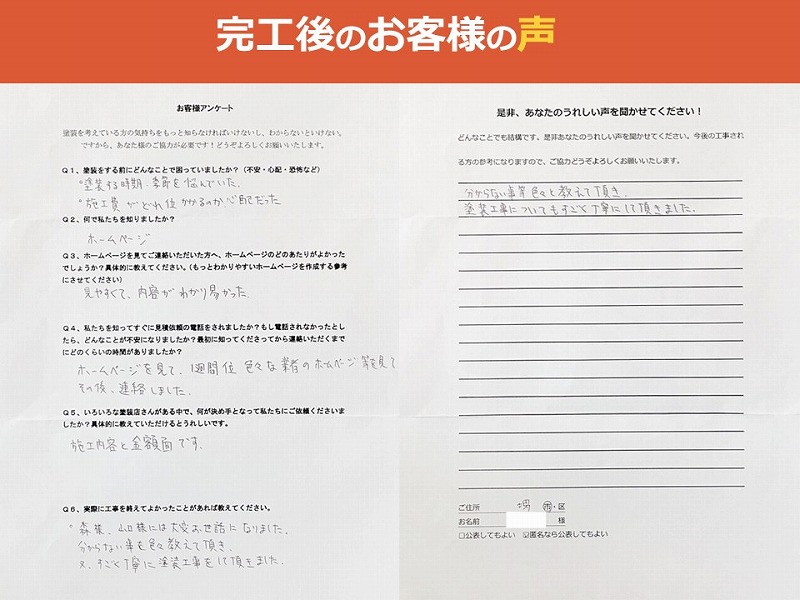 完工後のお客様の声
お客様アンケート
塗装を考えている方の気持ちをもっと知らなければいけないし、わからないといけない。
ですから、あなた様のご協力が必要です！どうぞよろしくお願いいたします。
Q１、塗装をする前にどんなことで困っていましたか？（不安・心配・恐怖など）
°塗装する時期・季節を悩んでいた。
°施工費がどれ位かかるのか心配だった
Q２、何で私たちを知りましたか？
ホームページ
Q３、ホームページを見てご連絡いただいた方へ、ホームページのどのあたりがよかった
でしょうか？具体的に教えてください。（もっとわかりやすいホームページを作成する参考
にさせてください）
見やすくて、内容がわかり易かった。
Q４、私たちを知ってすぐに見積依頼の電話をされましたか？もし電話されなかったとし
たら、どんなことが不安になりましたか？最初に知ってくださってから連絡いただくまで
にどのくらいの時間がありましたか？
ホームページを見て、1週間位色々な業者のホームページ等を見て
その後、連絡しました。
Q５、いろいろな塗装店さんがある中で、何が決め手となって私たちにご依頼くださいま
したか？具体的に教えていただけるとうれしいです。
施工内容と金額面です。
Q６、実際に工事を終えてよかったことがあれば教えてください。
°森様、山口様には大変お世話になりました。
分からない事を色々教えて頂き、
又、すごく丁寧に塗装工事をして頂きました。
是非、あなたのうれしい声を聞かせてください！
どんなことでも結構です。是非あなたのうれしい声を聞かせてください。今後の工事され
る方の参考になりますので、ご協力どうぞよろしくお願いいたします。
分からない事等色々と教えて頂き、
塗装工事についてもすごく丁寧にして頂きました。
ご住所 堺 西・区
お名前 様
□公表してもよい ☑匿名なら公表してもよい